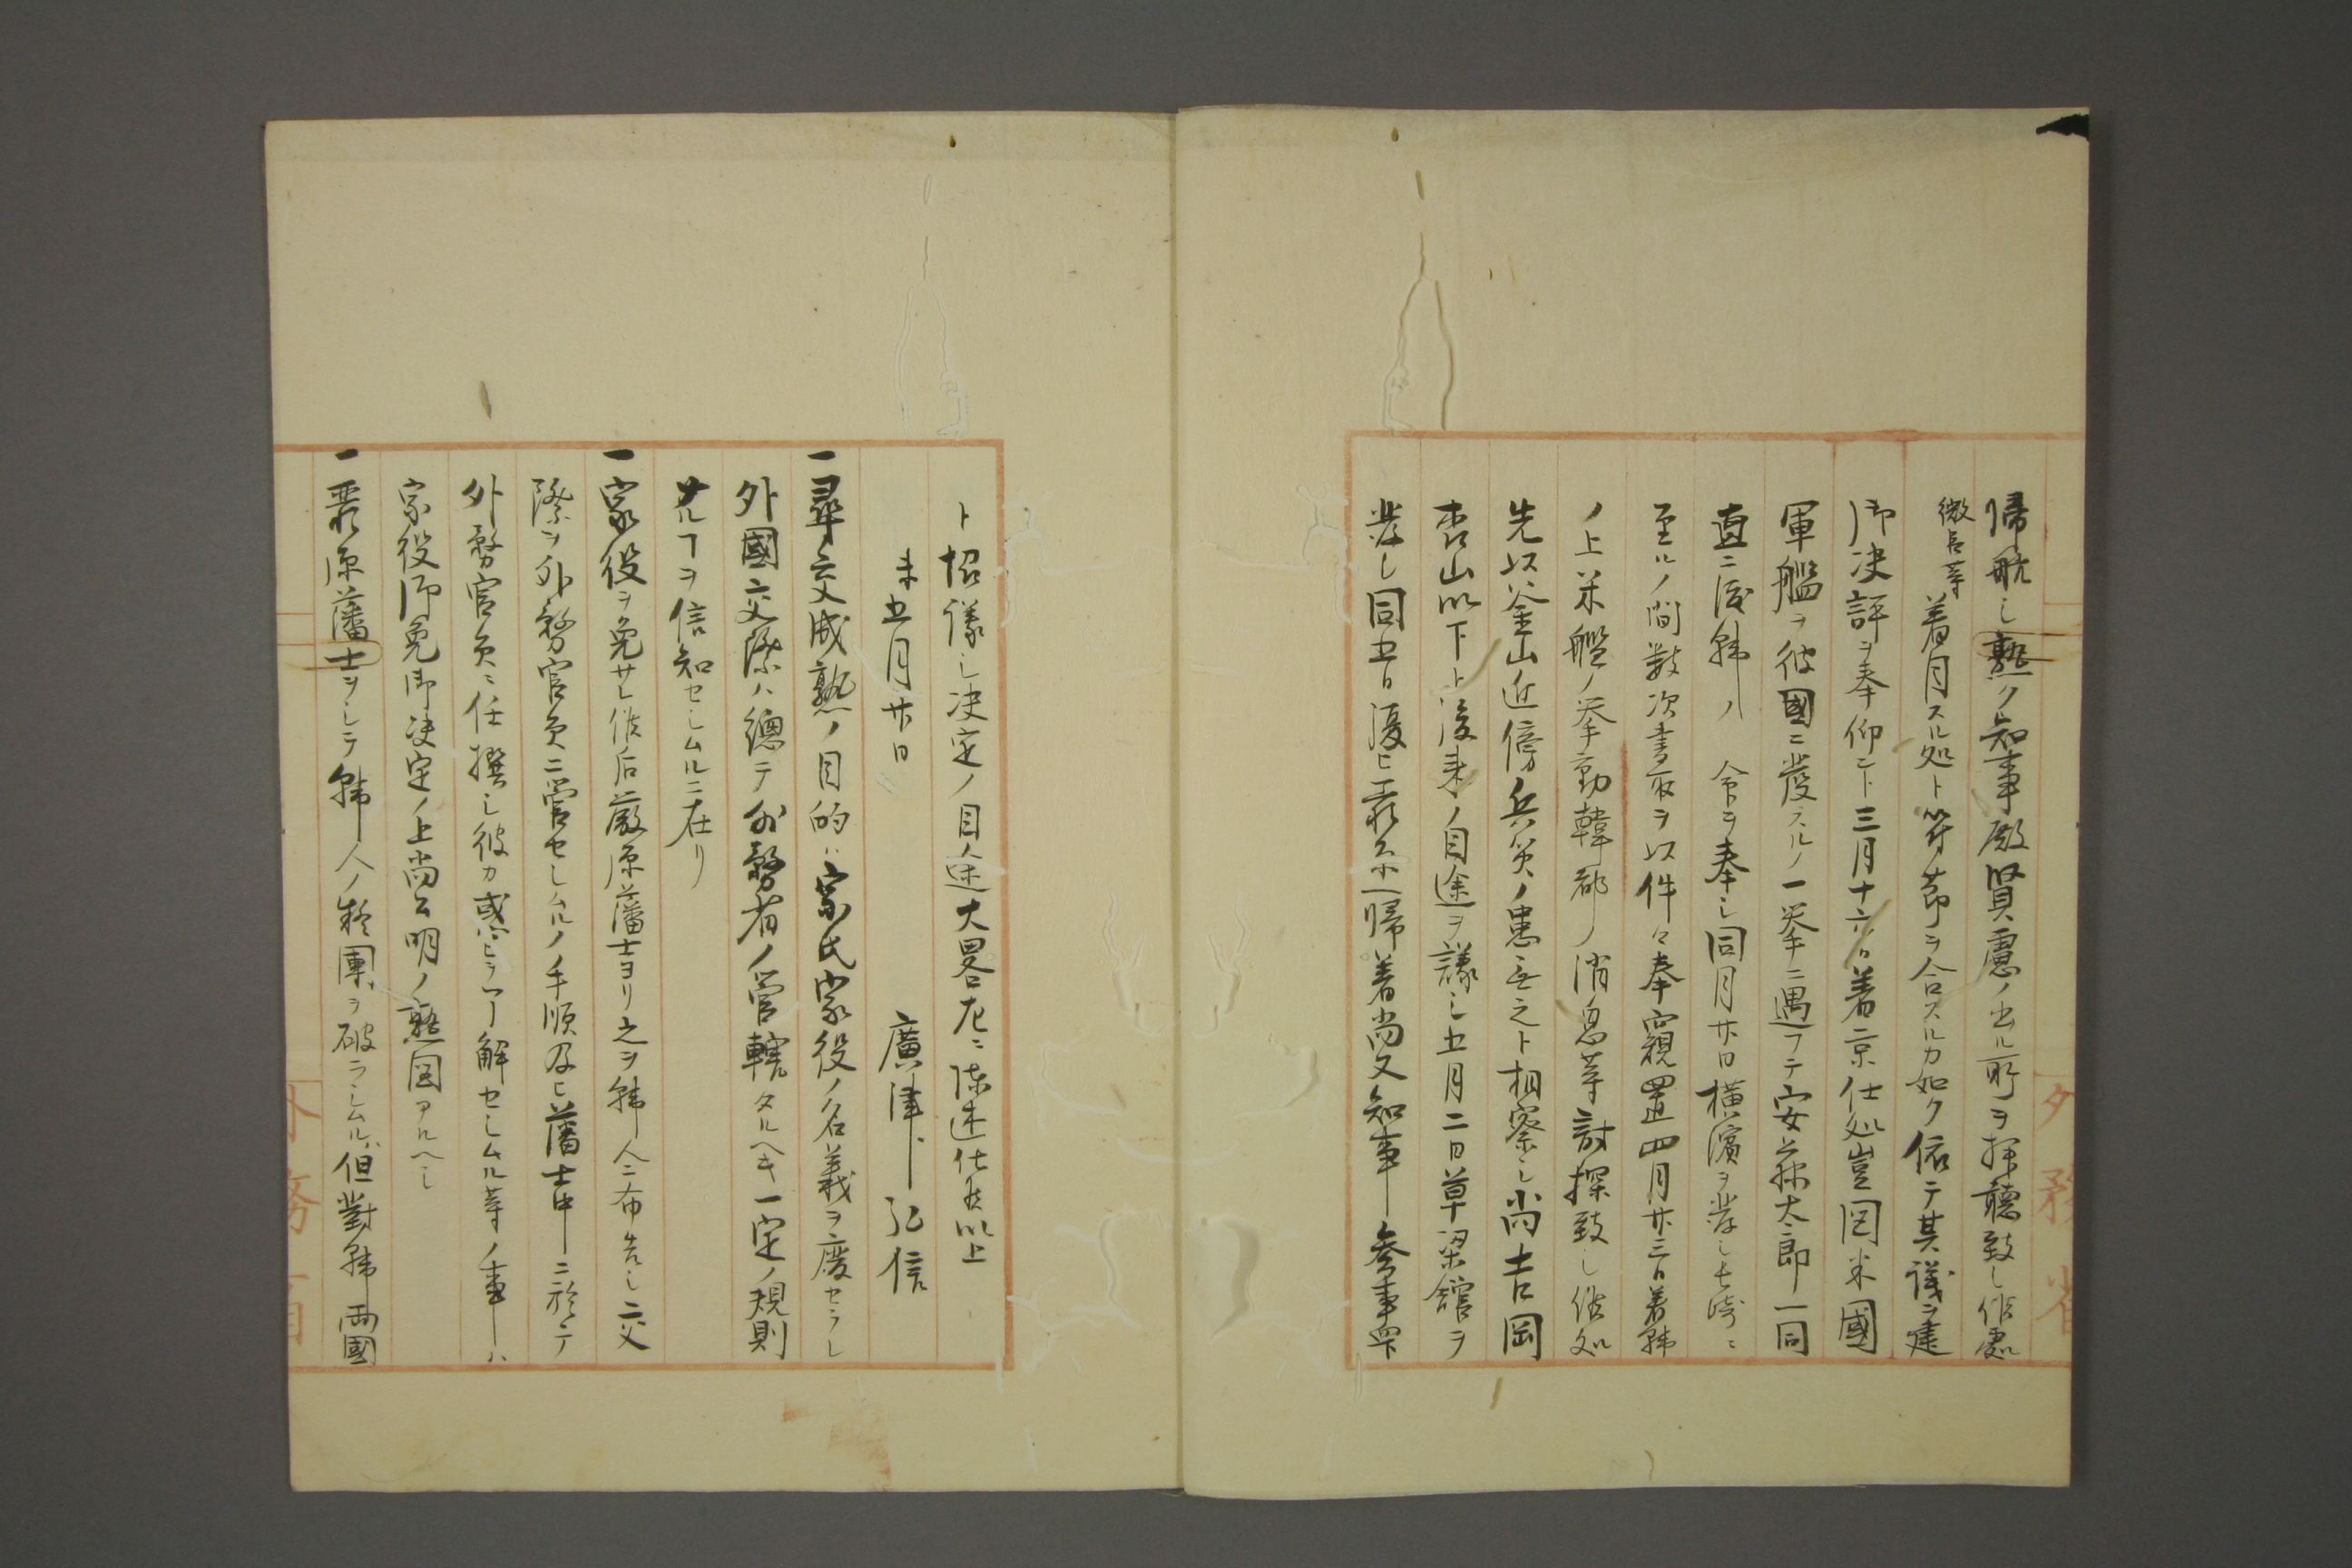 帰航し熟ク知事殿賢慮ノ出ル所ヲ拝聴致し候處
微臣等着目スル処ト符節ヲ合スルカ如ク依テ其議ヲ建
御决評ヲ奉仰ント三月十六日着京仕処豈図米國
軍艦ヲ彼國ニ發スルノ一挙ニ遇フテ安并太郎一同
直ニ渡韓ノ 令ヲ奉し同月廿日横濱ヲ発し長崎ニ
至ルノ間数次書取ヲ以件々奉窺置四月廿三日着韓
ノ上米艦ノ挙動韓都ノ消息等討探致し候処
先以釜山近傍兵災ノ患無之ト相察し尚吉岡
森山以下ト後来ノ目途ヲ議し五月二日草梁館ヲ
発し同五日嚴原ニ帰着尚又知事参事等
ト招議し决定ノ目途大畧左ニ陳述仕候以上
未五月廿日
廣津弘信
一尋交成熟ノ目的ハ宗氏家役ノ名義ヲ廢セラレ
外國交際ハ總テ外務省ノ管轄タルヘキ一定ノ規則
ナルヿヲ信知セしムルニ在リ
一家役ヲ免サレ候后嚴原藩士ヨリ之ヲ韓人ニ布告し交
際ヲ外務官員ニ管セしムルノ手順及ヒ藩士中ニ於テ
外務官員ニ任撰し彼カ惑ヒヲ了解セしムル等ノ事ハ
家役御免御决定ノ上尚公明ノ熟図アルヘし
一嚴原藩士ヲしテ韓人ノ疑團ヲ破ラしムル但對韓両國
外務省
外務省